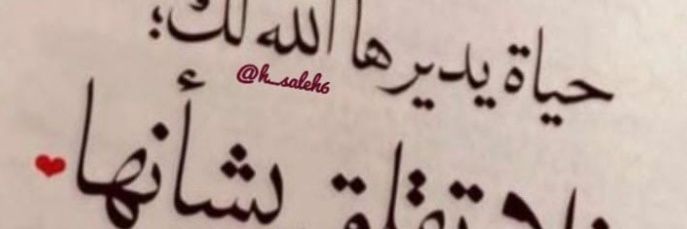 حياة يديرها الله لك؛
@h_saleh6
فلا تقلق بشأنها